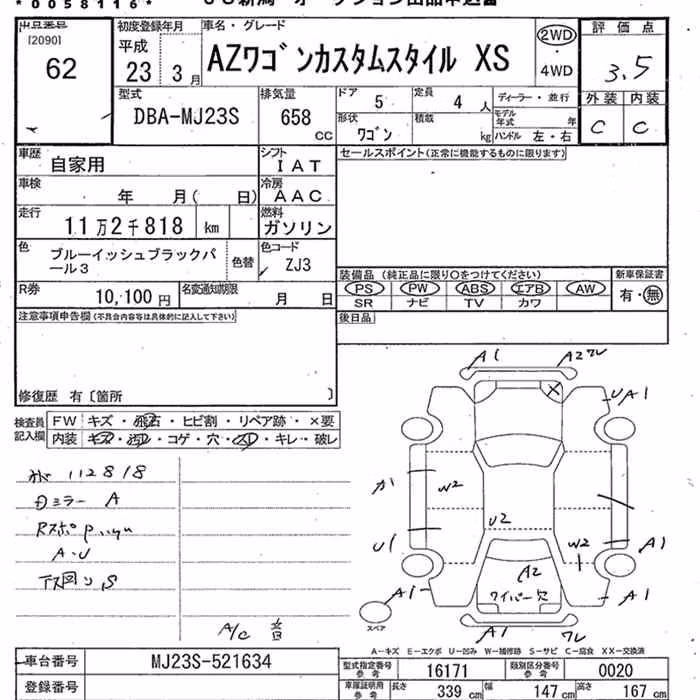 *0058116*
出品番号 [2090] 62
初度登録年月 平成 23年 3月
車名・グレード AZワゴンカスタムスタイル XS
2WD・4WD
評価点 3.5
型式 DBA-MJ23S
排気量 658 CC
ドア 5
定員 4 人
ディーラー・並行
形状 ワゴン
積載 kg
モデル年式 年
ハンドル 左・右
外装 C
内装 C
車歴 自家用
シフト IAT
セールスポイント(正常に機能するものに限ります)
車検 年 月( 日)
冷房 AAC
走行 11万2千818 km
燃料 ガソリン
色 ブルーイッシュブラックパール3
色替
色コード ZJ3
装備品 (純正品に限り○をつけてください)
新車保証書
PS PW ABS エアB AW
有・無
R券 10,100円
名変通知期限 月 日
SR ナビ TV カワ
注意事項申告欄(不具合内容等は具体的に記入して下さい)
後日品
修復歴 有〔箇所 〕
検査員記入欄
FW キズ・飛石・ヒビ割・リペア跡・×要
内装 キズ・汚レ・コゲ・穴・スレ・キレ・破レ
112818
ミラー A
A・U
A/C
A1 A2
UA1
W2
U2
U1
W2
A1
A2
ワイパー欠
A1
A1
スペア
A1
A-キズ E-エクボ U-凹み W-補修跡 S-サビ C-腐食 XX-交換済
車台番号 MJ23S-521634
型式指定番号 参考 16171
類別区分番号 参考 0020
登録番号
車庫証明用 参考 長さ 339 cm 幅 147 cm 高さ 167 cm